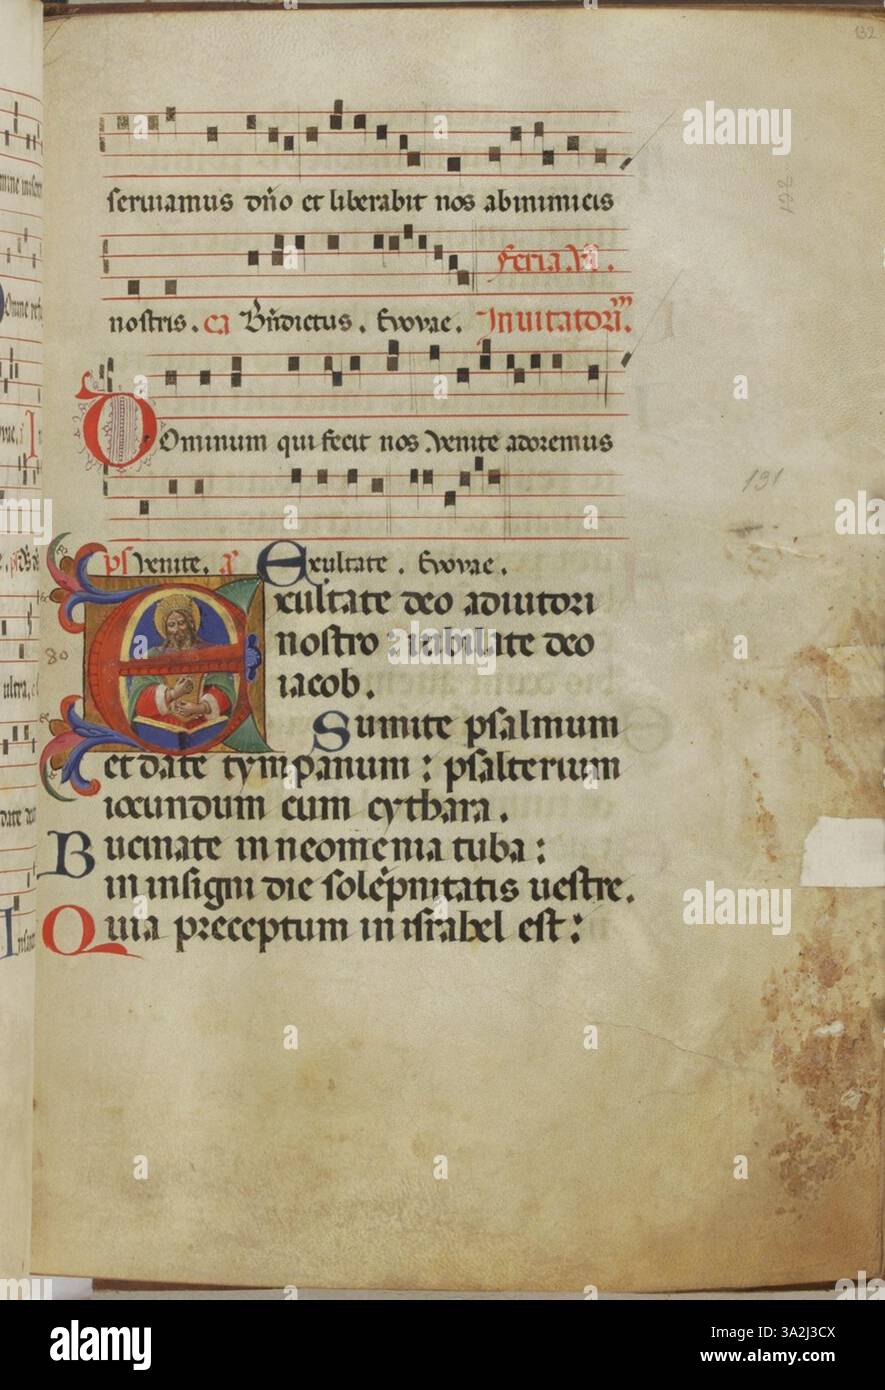 132
seruiamus dño et liberabit nos abinimicis
Feria. VI.
nostris. ca Bñdictus. Evovae. Inuitatoriᷤ.
Dominum qui fecit nos. Venite adoremus
131
ps Venite. a Exultate. Evovae.
Exultate deo adiutori
nostro : iubilate deo
80
iacob.
Sumite psalmum
et date tympanum : psalterium
iocundum cum cythara.
Bucinate in neomenia tuba :
in insigni die solēpnitatis uestre.
Quia preceptum in israhel est :
alamy
Image ID: 3A2J3CX
www.alamy.com